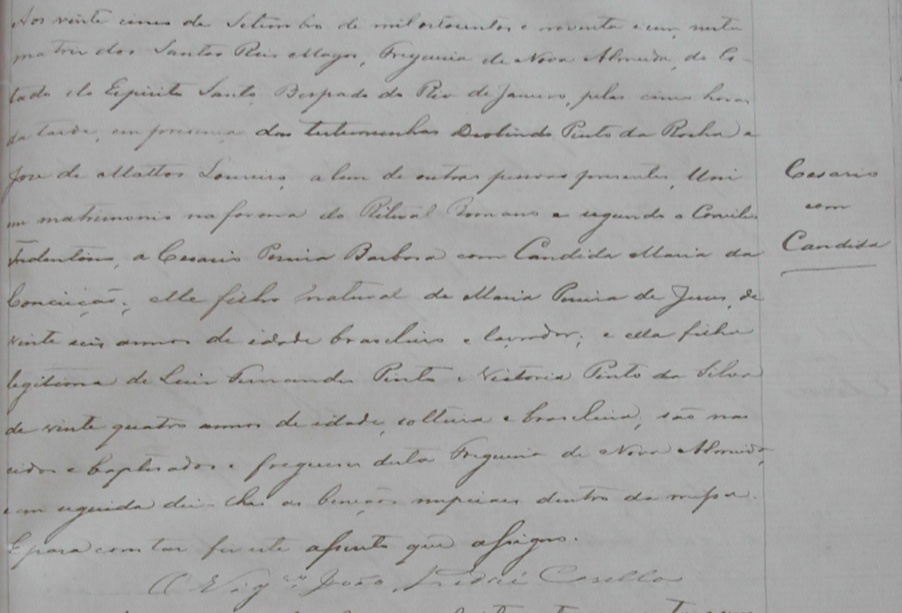 Aos vinte cinco de Setembro de mil oitocentos e noventa e um, nesta
matriz dos Santos Reis Magos, Freguesia de Nova Almeida, do Es-
tado do Espirito Santo, Bispado do Rio de Janeiro, pelas cinco horas
da tarde, em presença das testemunhas Deolindo Pinto da Rocha e
Jose de Mattos Loureiro, alem de outras pessoas presentes, Uni
em matrimonio na forma do Ritual Romano e segundo o Concilio
Tridentino, a Cesario Pereira Barbosa com Candida Maria da
Conceição; elle filho natural de Maria Pereira de Jesus, de
vinte seis annos de idade brasileiro e lavrador; e ella filha
legitima de Luis Fernandes Pinto e Victoria Pinto da Silva
de vinte quatro annos de idade, solteira e brasileira, são nas
cidos e baptisados e fregueses desta Freguesia de Nova Almeida,
em seguida dei-lhes as bençãos nupciaes dentro da missa.
E para constar fiz este assento que assigno.
O Vig.ro João
Cesario
com
Candida